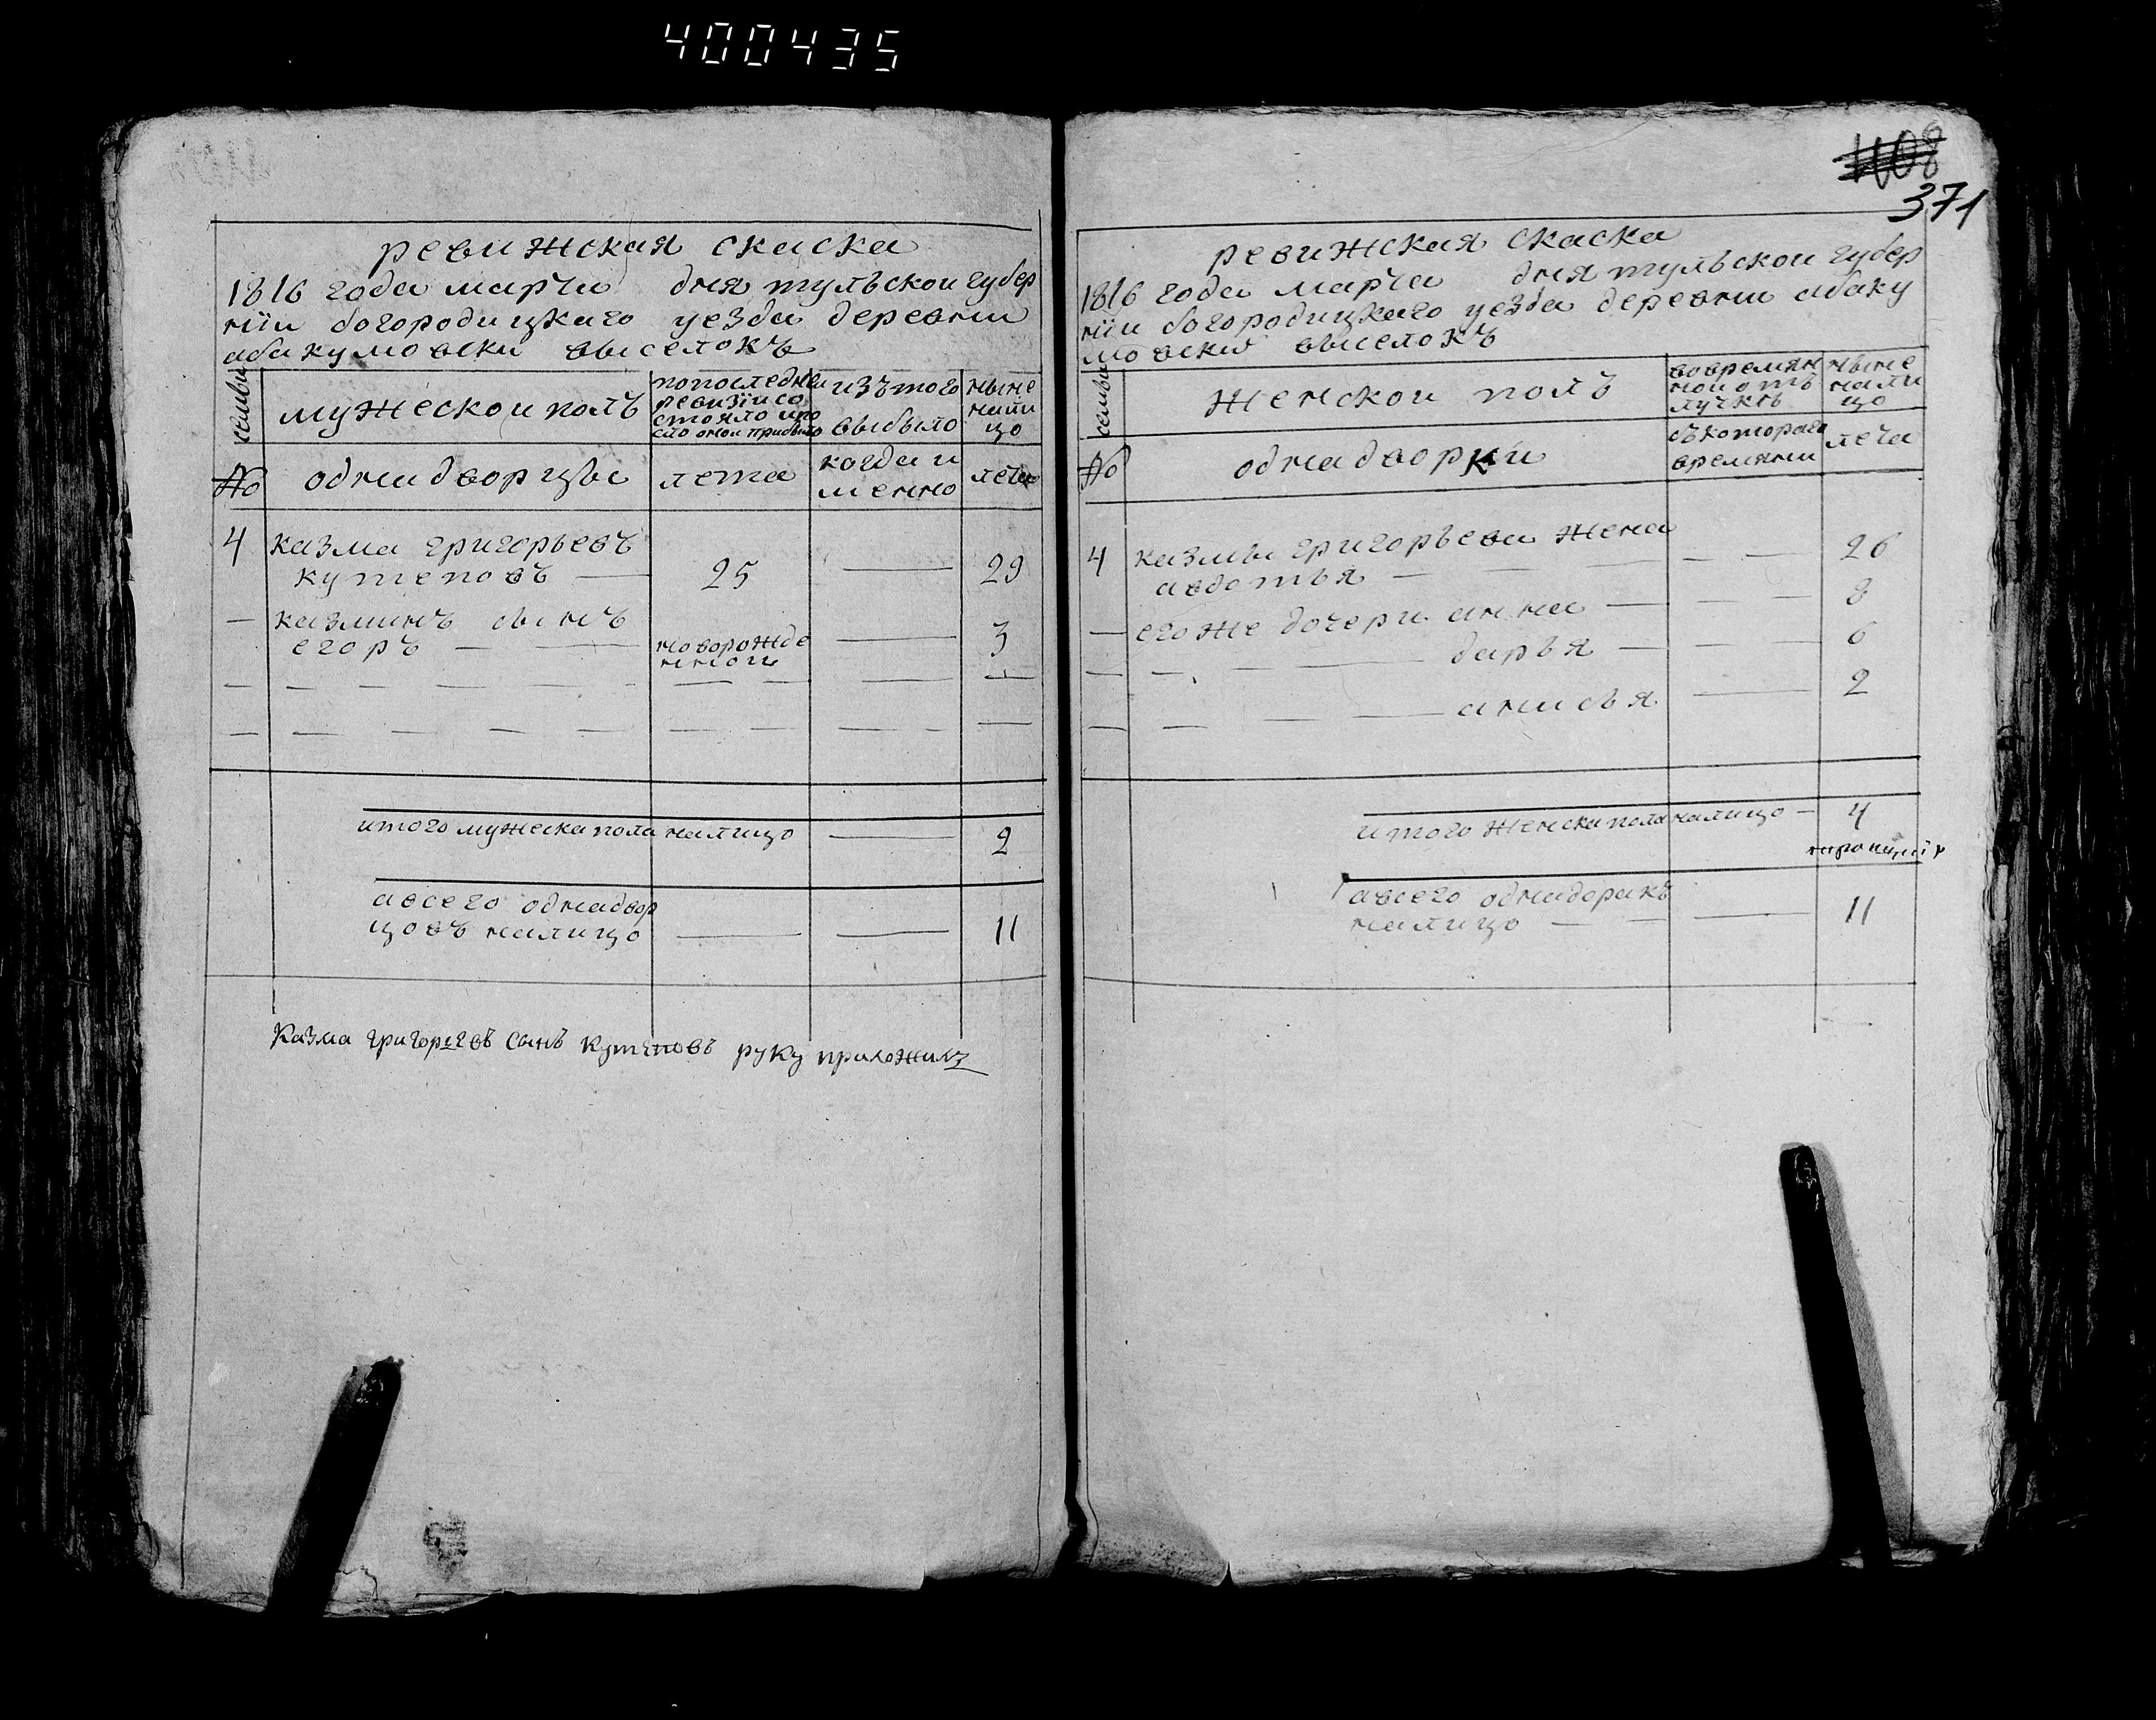 400435
ревижская скаска
1816 года марта дня тульской губер
нїи богородицкаго уезда деревни
абакумовски выселокъ
семьи
мужеской полъ
попоследней
ревизїи со
стояло ипо
сло оной прибыло
изътого
выбыло
ныне
нали
цо
№
однадворцы
лета
когда и
менно
лета
4
казма григорьевъ
кутеповъ
25
29
казминъ сынъ
егоръ
новорожде
нной
3
итого мужеска пола налицо
2
авсего однадвор
цовъ налицо
11
Казма григорьевъ сынъ кутеповъ руку приложилъ
408
371
ревижская скаска
1816 года марта дня тульской губер
нїи богородицкаго уезда деревни абаку
мовски выселокъ
семьи
женской полъ
вовремян
ной отъ
лучкѣ
ныне
нали
цо
№
однадворки
съкотораго
времяни
лета
4
казмы григорьева жена
авдотья
26
егоже дочери анна
8
дарья
6
анисья
2
итого женска пола налицо
4
авсего однадворкъ
налицо
11